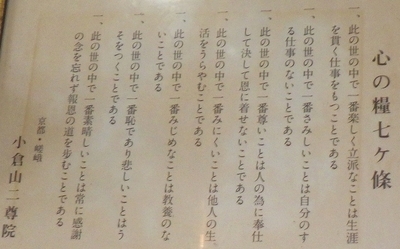 心の糧七ケ條
一、此の世の中で一番楽しく立派なことは生涯
を貫く仕事をもつことである
一、此の世の中で一番さみしいことは自分のす
る仕事のないことである
一、此の世の中で一番尊いことは人の為に奉仕
して決して恩に着せないことである
一、此の世の中で一番みにくいことは他人の生
活をうらやむことである
一、此の世の中で一番みじめなことは教養のな
いことである
一、此の世の中で一番恥であり悲しいことはう
そをつくことである
一、此の世の中で一番素晴しいことは常に感謝
の念を忘れず報恩の道を歩むことである
京都・嵯峨
小倉山二尊院